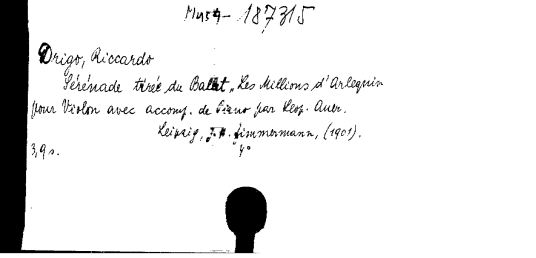 Mus4- 187315
Drigo, Riccardo
Sérénade tirée du Ballet „Les Millions d'Arlequin
pour Violon avec accomp. de Piano par Leop. Auer.
Leipzig, J.H. Zimmermann, (1901).
3,9 s. 4°